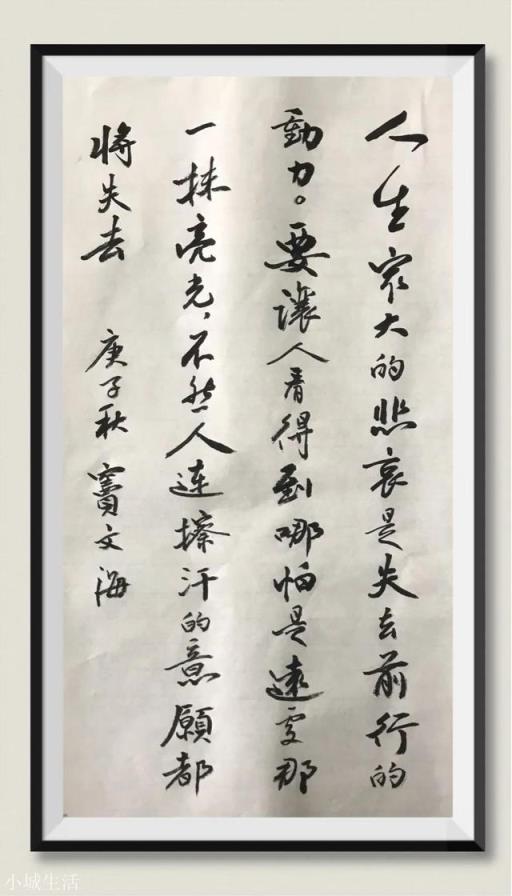 人生最大的悲哀是失去前行的
動力。要讓人看得到哪怕是遠處那
一抹亮光,不然人連擦汗的意願都
將失去 庚子秋 竇文海
小城生活